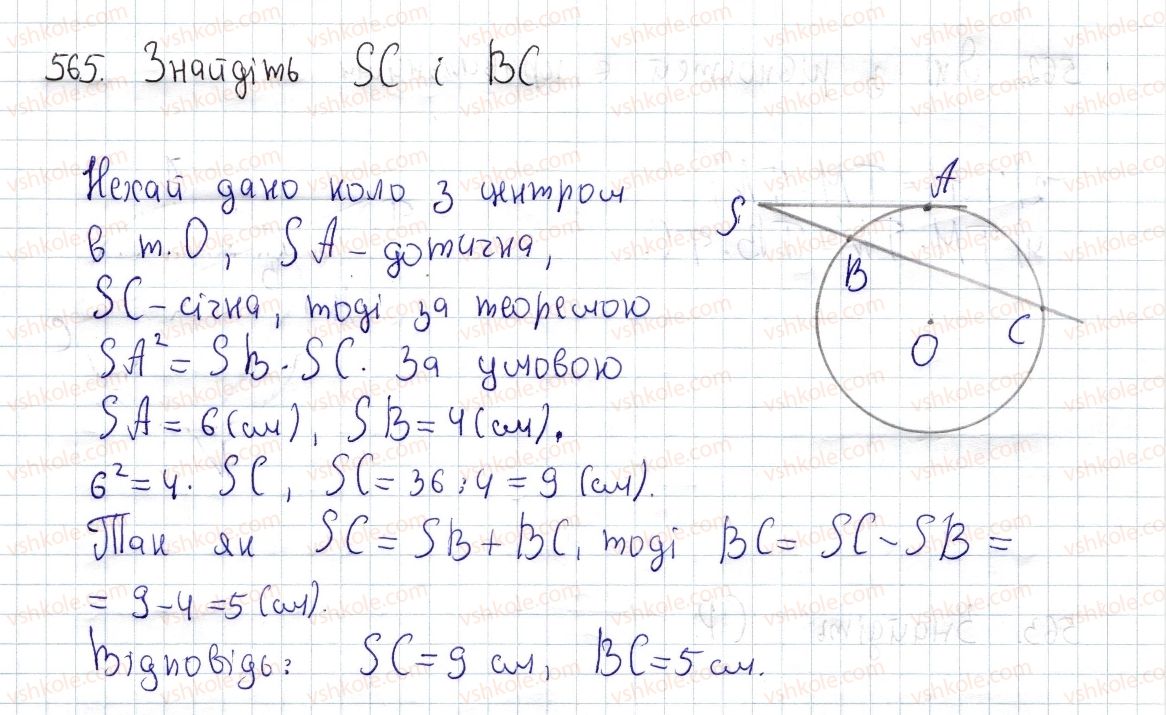 565. Знайдіть SC і BC
Нехай дано коло з центром
в т. O, SA – дотична,
SC – січна, тоді за теоремою
SA² = SB · SC. За умовою
SA = 6 (см), SB = 4 (см).
6² = 4 · SC, SC = 36 : 4 = 9 (см).
Так як SC = SB + BC, тоді BC = SC – SB =
= 9 – 4 = 5 (см).
Відповідь: SC = 9 см, BC = 5 см.
S
A
B
C
O
vshkole.com